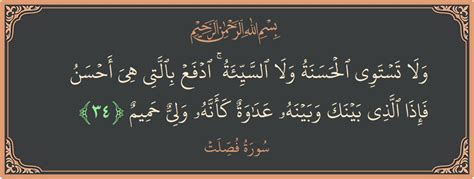 بِسْمِ اللَّهِ الرَّحْمَٰنِ الرَّحِيمِ
وَلَا تَسْتَوِي الْحَسَنَةُ وَلَا السَّيِّئَةُ ۚ ادْفَعْ بِالَّتِي هِيَ أَحْسَنُ
فَإِذَا الَّذِي بَيْنَكَ وَبَيْنَهُ عَدَاوَةٌ كَأَنَّهُ وَلِيٌّ حَمِيمٌ ﴿٣٤﴾
سُورَةُ فُصِّلَتْ